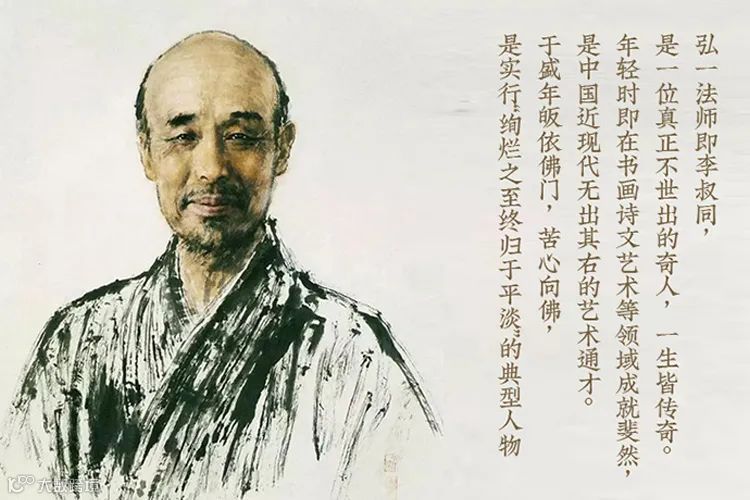 弘一法师即李叔同，
是一位真正不世出的奇人，一生皆传奇。
年轻时即在书画诗文艺术等领域成就斐然，
是中国近现代无出其右的艺术通才。
于盛年皈依佛门，苦心向佛，
是实行“绚烂之至终归于平淡”的典型人物
大数跨境